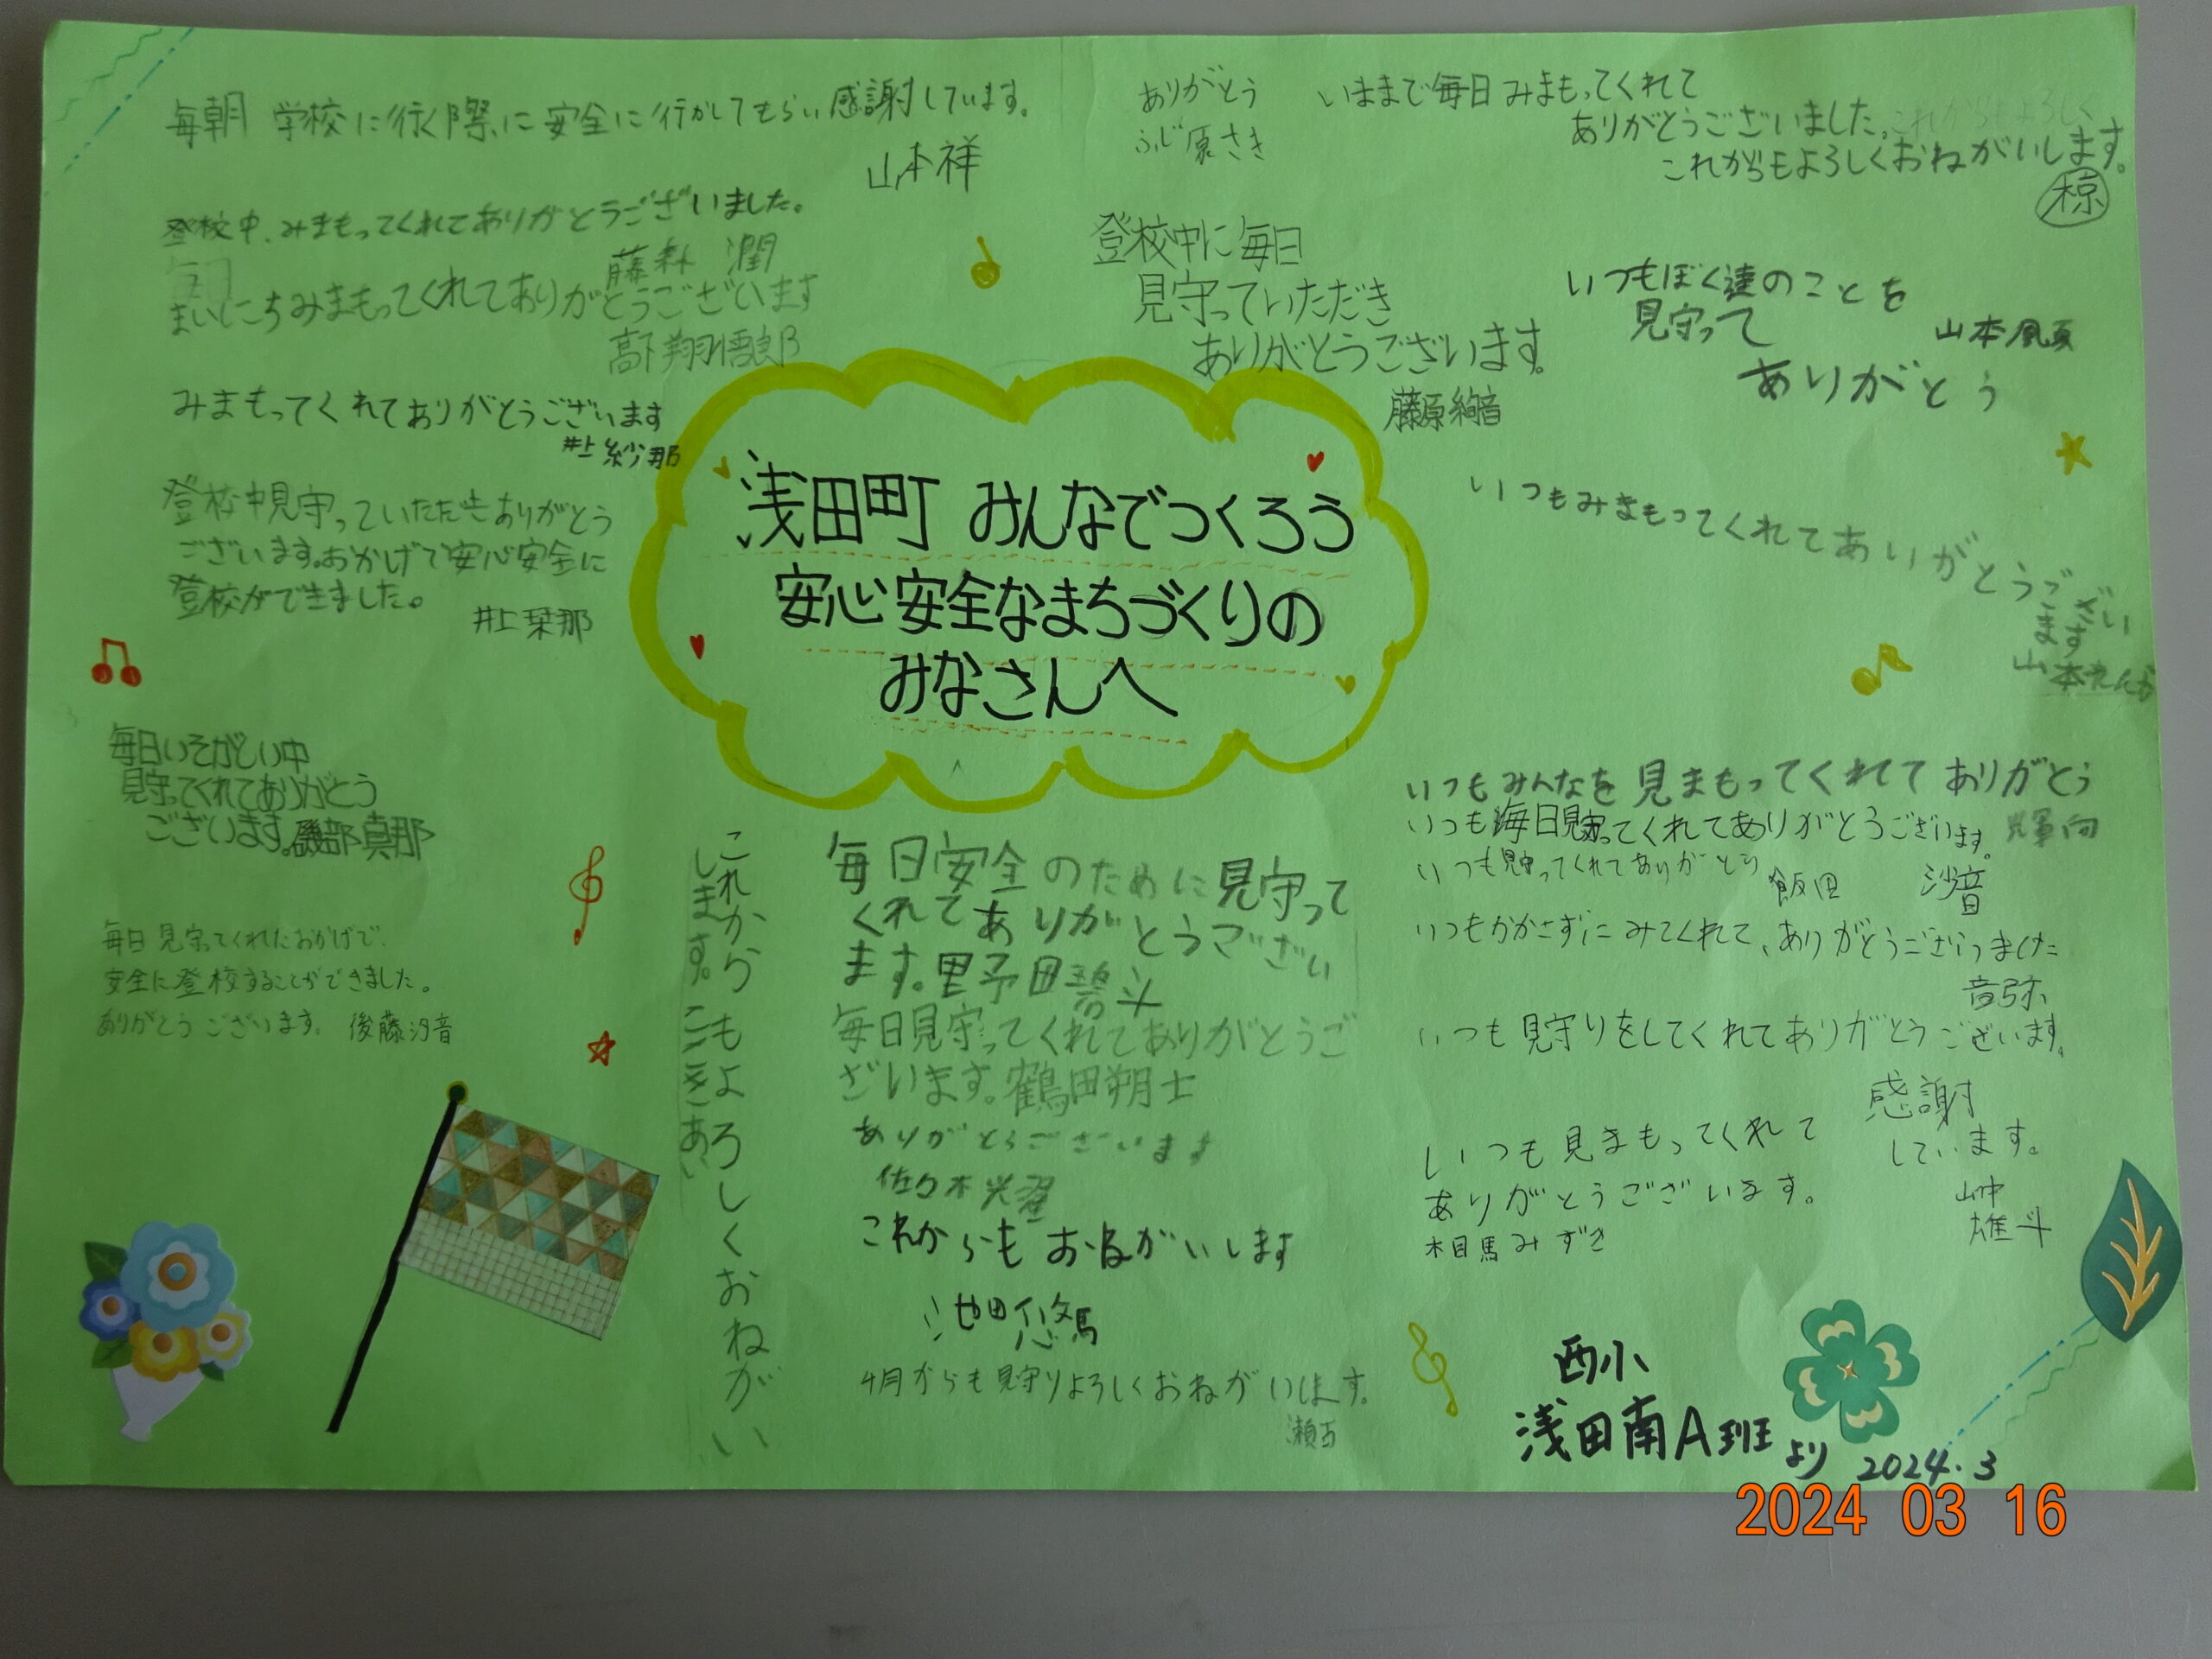 毎朝 学校に行く際に安全に行かしてもらい感謝しています。
山本祥
登校中、みまもってくれてありがとうございました。
藤森 潤
まいにちみまもってくれてありがとうございます
みまもってくれてありがとうございます
井上紗那
登校中見守っていただきありがとう
ございます。おかげで安心安全に
登校ができました。
井上栞那
毎日いそがしい中
見守ってくれてありがとう
ございます。磯部真那
毎日見守ってくれたおかげで、
安全に登校することができました。
ありがとうございます。 後藤汐音
ありがとう
ふじ原さき
いままで毎日みまもってくれて
ありがとうございました。
これからもよろしくおねがいします。
椋
登校中に毎日
見守っていただき
ありがとうございます。
藤原絢音
いつもぼく達のことを
見守って
ありがとう
山本颯真
浅田町 みんなでつくろう
安心安全なまちづくりの
みなさんへ
いつもみまもってくれてありがとうござい
ます
山本れんか
これからもよろしくおねがい
します。
毎日安全のために見守って
くれてありがとうござい
ます。野田碧斗
毎日見守ってくれてありがとうご
ざいます。鶴田朔士
ありがとうございます
佐々木光
これからもおねがいします
池田悠馬
4月からも見守りよろしくおねがいします。
瀬古
いつもみんなを見まもってくれてありがとう
いつも毎日見守ってくれてありがとうございます。
いつも見守ってくれてありがとう
飯田 沙音
いつもかかさずにみてくれて、ありがとうございました
音弥
いつも見守りをしてくれてありがとうございます。
感謝
しています。
山中
雄斗
いつも見まもってくれて
ありがとうございます。
相馬みずき
西小
浅田南A班より 2024.3
2024 03 16